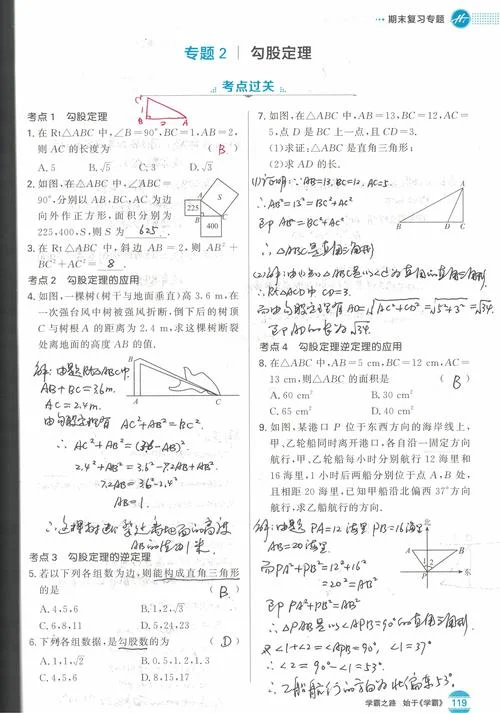 期末复习专题
专题2 勾股定理
考点过关
考点1 勾股定理
1. 在 Rt△ABC 中,∠B=90°,BC=1,AB=2,
则 AC 的长度为 ( B. )
A. 5 B. √5 C. 3 D. √3
2. 如图,在△ABC 中,∠ABC=
90°,分别以 AB,BC,AC 为边
向外作正方形,面积分别为
225,400,S,则 S 为 625.
225
S
400
A
B
C
3. 在 Rt△ABC 中,斜边 AB=2,则 AB²+
BC²+AC²= 8 .
考点2 勾股定理的应用
4. 如图,一棵树(树干与地面垂直)高 3.6 m,在
一次强台风中树被强风折断,倒下后的树顶
C 与树根 A 的距离为 2.4 m,求这棵树断裂
处离地面的高度 AB 的值.
解:由题 Rt△ABC中
AB+BC=3.6m.
AC=2.4m.
由勾股定理有 AC²+AB²=BC².
∴ AC²+AB²=(3.6-AB)²
2.4²+AB²=3.6²-7.2AB+AB²
7.2AB=3.6²-2.4²
AB=1.
考点3 勾股定理的逆定理
5. 若以下列各组数为边,则能构成直角三角形
的是 ( B. )
A. 4,5,6 B. 1,2,√3
C. 6,8,11 D. 5,24,23
6. 下列各组数据,是勾股数的为 ( D )
A. 1,1,√2 B. 0.5,1.2,1.3
C. 4,5,6 D. 8,15,17
7. 如图,在△ABC 中,AB=13,BC=12,AC=
5,点 D 是 BC 上一点,且 CD=3.
(1)求证:△ABC 是直角三角形;
(2)求 AD 的长.
(1)证明:∵AB=13, BC=12, AC=5.
∴AB²=13²=BC²+AC²
即 AB²=BC²+AC²
∴△ABC是直角三角形
∴Rt△ACD中 CD=3.
而由勾股定理有 AD=√AC²+CD²=√5²+3²=√34.
即AD的长为√34.
考点4 勾股定理逆定理的应用
8. 在△ABC 中,AB=5 cm,BC=12 cm,AC=
13 cm,则△ABC 的面积是 ( B )
A. 60 cm² B. 30 cm²
C. 65 cm² D. 40 cm²
9. 如图,某港口 P 位于东西方向的海岸线上,
甲、乙轮船同时离开港口,各自沿一固定方向
航行,甲、乙轮船每小时分别航行 12 海里和
16 海里,1 小时后两船分别位于点 A,B 处,
且相距 20 海里,已知甲船沿北偏西 37°方向
航行,求乙船航行的方向.
解:由题 PA=12海里 PB=16海里
AB=20海里.
而PA²+PB²=12²+16²
=20²=AB²
即 PA²+PB²=AB²
∴△PAB是以∠APB=90°的直角三角形.
又∠1+∠2=∠APB=90°, ∠1=37°
∴∠2=90°-∠1=53°.
∴乙船航行的方向为北偏东53°.
学霸之路 始于《学霸》 119